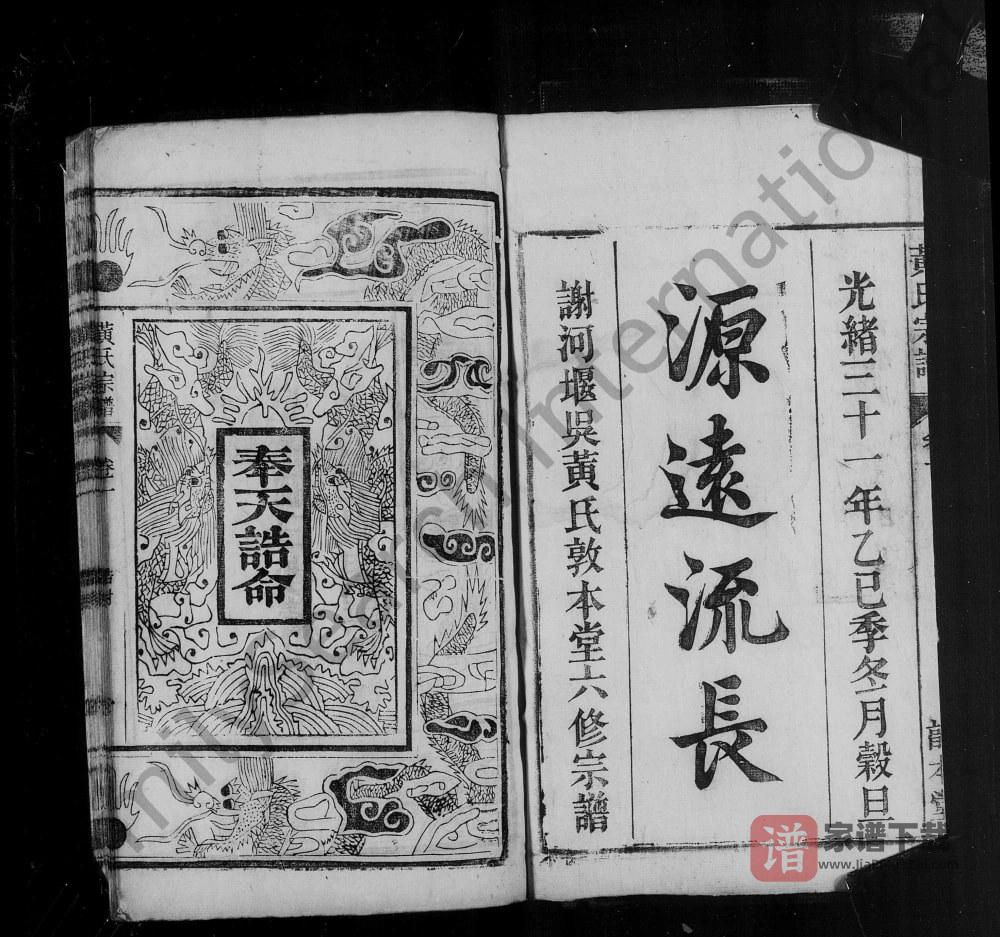 黃氏宗譜
光緒三十一年乙巳季冬月穀旦
源遠流長
謝河堰吳黃氏敦本堂六修宗譜
奉天誥命
黃氏宗譜
卷一
family research international
谱
家谱下载